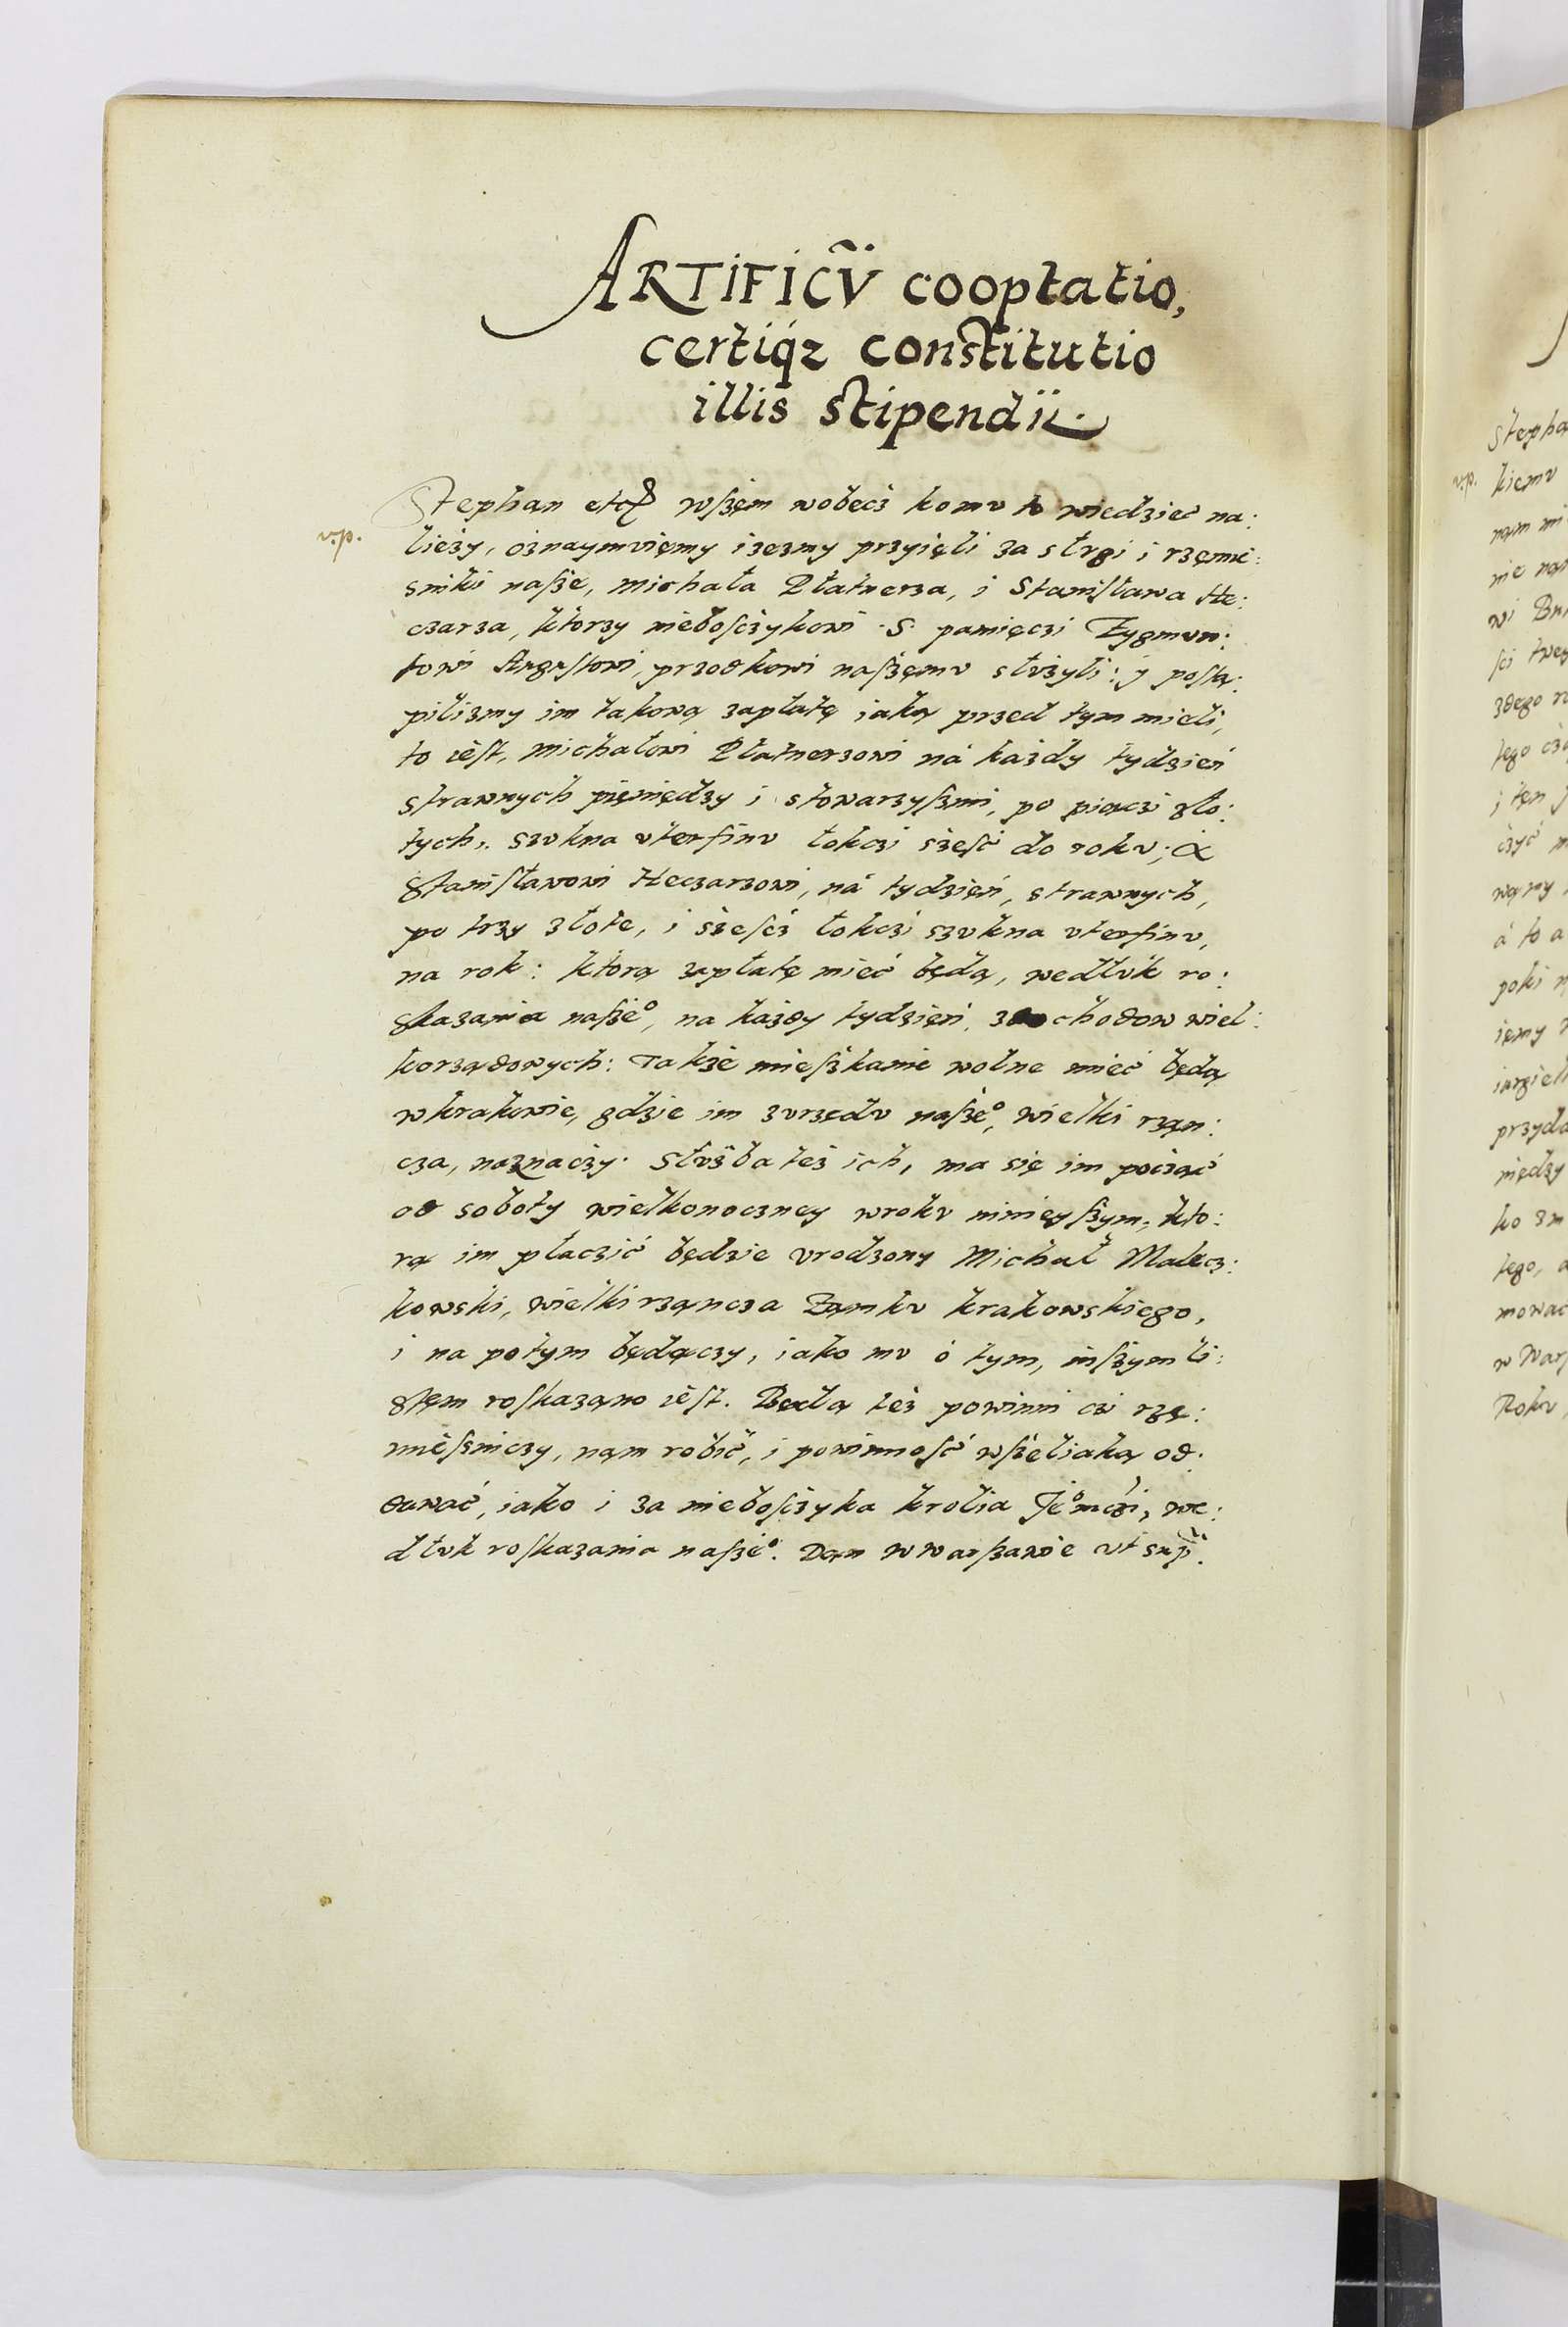 ARTIFICṼ cooptatio,
certiq́z constitutio
illis stipendii.
Stephan etc̃ wſzęm wobecż komv to wiedzieć na:
v.p.
lieży, oznaymvięmy izezmy przyięli za slvgi i rzęmie:
sniki naſże, Michała Płatnerza, i Staniſława He:
czarza, ktorzy nieboſcżykowi .S. pamięczi Zygmvn:
towi Avgvſtowi, przodkowi naſżęmv slvżyli: y poſtą:
pilizmy im takową zapłatę iaką przed tym mieli,
to ieſt, Michałowi Płatnerzowi ná każdy tydzień
strawnych pięniędzy i stowarzyſzmi, po piącżi zło:
tych,. svkna vterfinv łokczi sżeść do rokv; á
Staniſławowi Heczarzowi, ná tydzięń, strawnych,
po trzy złote, i sżeſcż łokczi szvkna vterfinv,
na rok: ktorą zapłatę mieć będą, wedłvk ro:
skazania naſże°, na każdy tydzięń, z chodow wiel:
korządowych: Także mieſżkanie wolne mieć będą
wkrakowie, gdzie im zvrzędv naſże°, wielki rząn:
cza, naznaczy. Slvżba też ich, ma się im pocżąć
od soboty wielkonoczney wrokv ninięyſzym, kto:
rą im płaczić będzie vrodzony Michał Malecz:
kowski, wielki rząncza Zamkv krakowskiego,
i na potym będączy, iako mv o tym, inſżym li:
stęm roſkaząno ieſt. Będą też powinni ci rzę:
mięſniczy, nąm robić, i powinnoſć wſżeliaką od:
dawać, iako i za nieboſcżyka krolia Je°mczi, we:
dlvk roſkazania naſże°. Dan wwarſzawie vt sup̃.